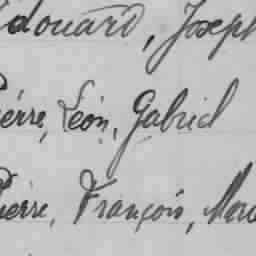 Édouard, Joseph
Pierre, Léon, Gabriel
Pierre, François, Marc